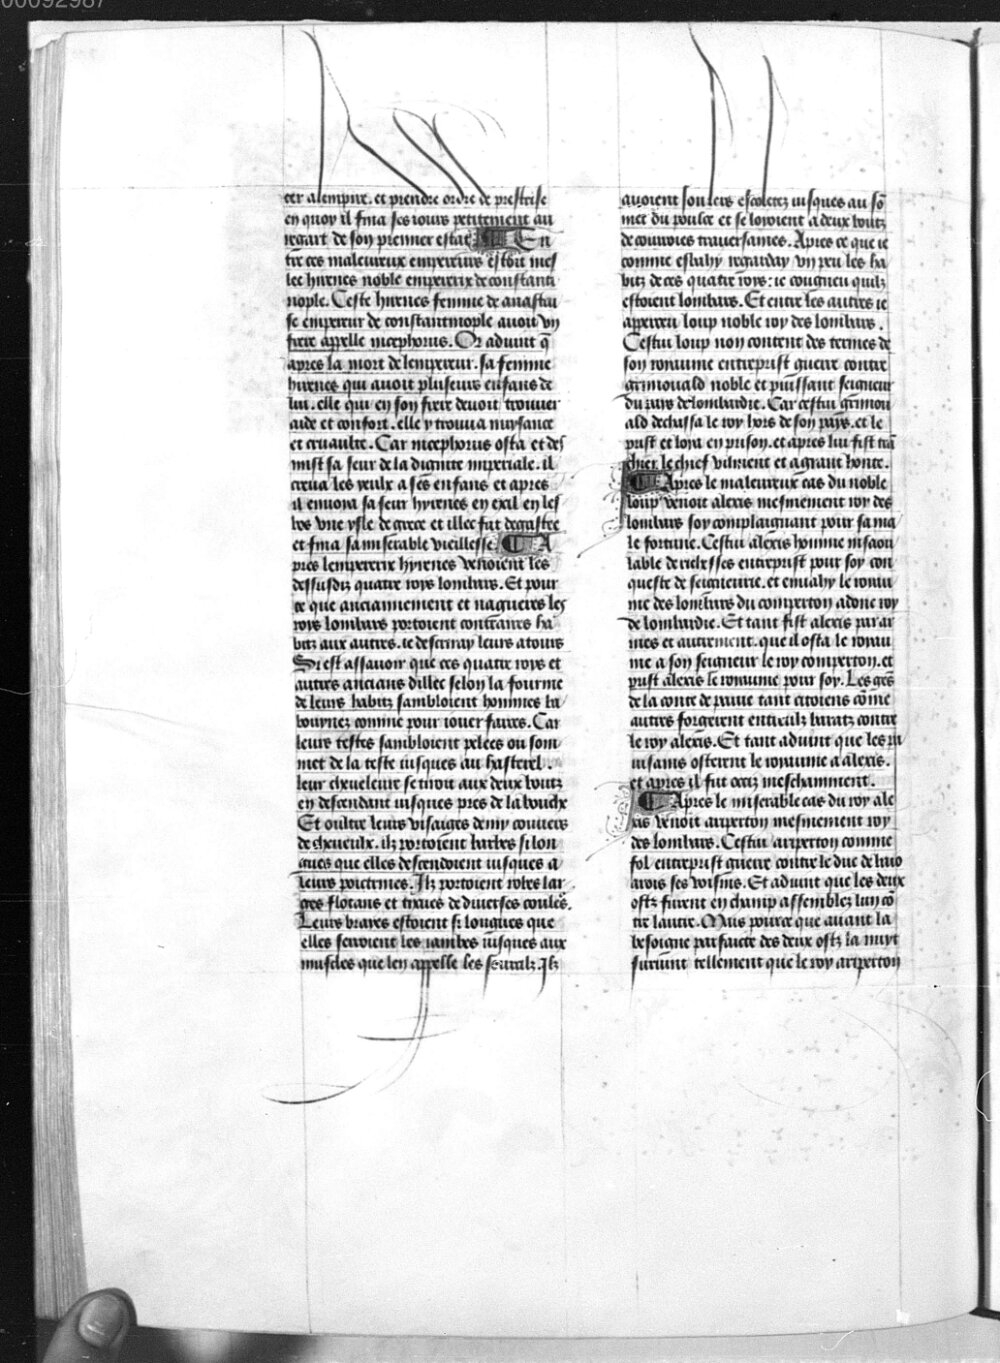 00092987
cer alempire. et prendre ordre de prestrise
en quoy il fina ses iours petitement au
regart de son premier estat. En
tre ces maleureux empereurs estoit mes
lee hirenes noble empereix de constanti
nople. Ceste hirenes femme de anastai
se empereur de constantinople auoit vn
frere appelle nicephorus. Or aduint q̄
apres la mort de lempereur. sa femme
hirenes qui auoit plusieurs enfans de
lui. elle qui en son frere deuoit trouuer
aide et confort. elle y trouua nuysance
et cruaulte. Car nicephorus osta et des
mist sa seur de la dignite imperiale. il
creua les yeulx a ses enfans et apres
il enuoia sa seur hyrenes en exil en les
bos vne ysle de grece et illec fut degastee
et fina sa miserable vieillesse. A
pres lempereix hyrenes venoient les
dessusdiz quatre roys lombars. Et pour
ce que anciannement et nagueres les
roys lombars portoient contraires ha
biz aux autres. ie descriray leurs atours
Si est assauoir que ces quatre roys et
autres ancians dillec selon la fourme
de leurs habitz sambloient hommes ta
bourynez comme pour iouer farces. Car
leurs testes sambloient pelees ou som
met de la teste iusques au hasterel.
leur cheueleure se tiroit aux deux boutz
en descendant iusques pres de la bouche
Et oultre leurs visaiges demy couuers
de cheueulx. ilz portoient barbes si lon
gues que elles descendoient iusques a
leurs poictrines. Ilz portoient robes lar
ges flotans et tixues de diuerses coules.
Leurs brayes estoient si longues que
elles seruoient les iambes iusques aux
muscles que len appelle les seuralz. Ilz
auoient soulers escoletez iusques au sō
met du poulce et se looient a deux boutz
de courroies trauersaines. Apres ce que ie
comme esbahy regarday vn peu les ha
biz de ces quatre roys: ie cougneu quilz
estoient lombars. Et entre les autres ie
apperceu loup noble roy des lombars.
Cestui loup non content des termes de
son royaume entreprist guerre contre
grimouald noble et puissant seigneur
du pays de lombardie. Car cestui grimou
ald dechassa le roy hors de son pays. et le
prist et loya en prison. et apres lui fist trā
chier le chief vilment et a grant honte.
Apres le maleureux cas du noble
loup venoit alexis mesmement roy des
lombars soy complaignant pour sa ma
le fortune. Cestui alexis homme insaou
lable de richesses entreprist pour soy con
queste de seigneurie. et enuahy le royau
me des lombars du comperton adonc roy
de lombardie. Et tant fist alexis par ar
mes et autrement. que il osta le royau
me a son seigneur le roy comperton. et
prist alexis le royaume pour soy. Les gēs
de la conte de pauie tant citoiens cōme
autres forgerent entreulz baratz contre
le roy alexis. Et tant aduint que les pa
uisains osterent le royaume a alexis.
et apres il fut occiz meschamment.
Apres le miserable cas du roy ale
xis venoit arperton mesmement roy
des lombars. Cestui arperton comme
fol entreprist guerre contre le duc de baio
arois ses voisins. Et aduint que les deux
ostz furent en champ assemblez lun cō
tre lautre. Mais pource que auant la
besoigne parfaicte des deux ostz la nuyt
suruint tellement que le roy arperton